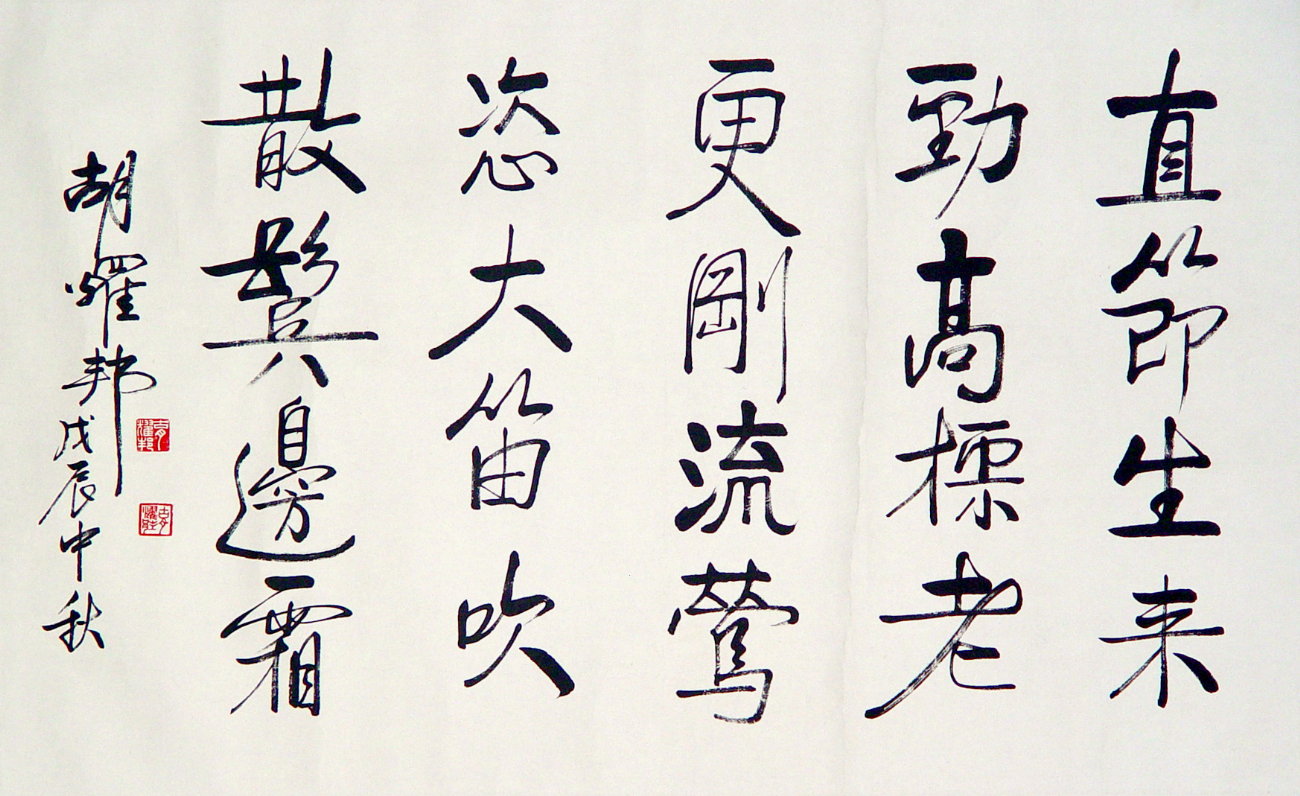 直節生来
勁高標老
更剛流莺
恣大笛吹
散鬓邊霜
胡耀邦戊辰中秋